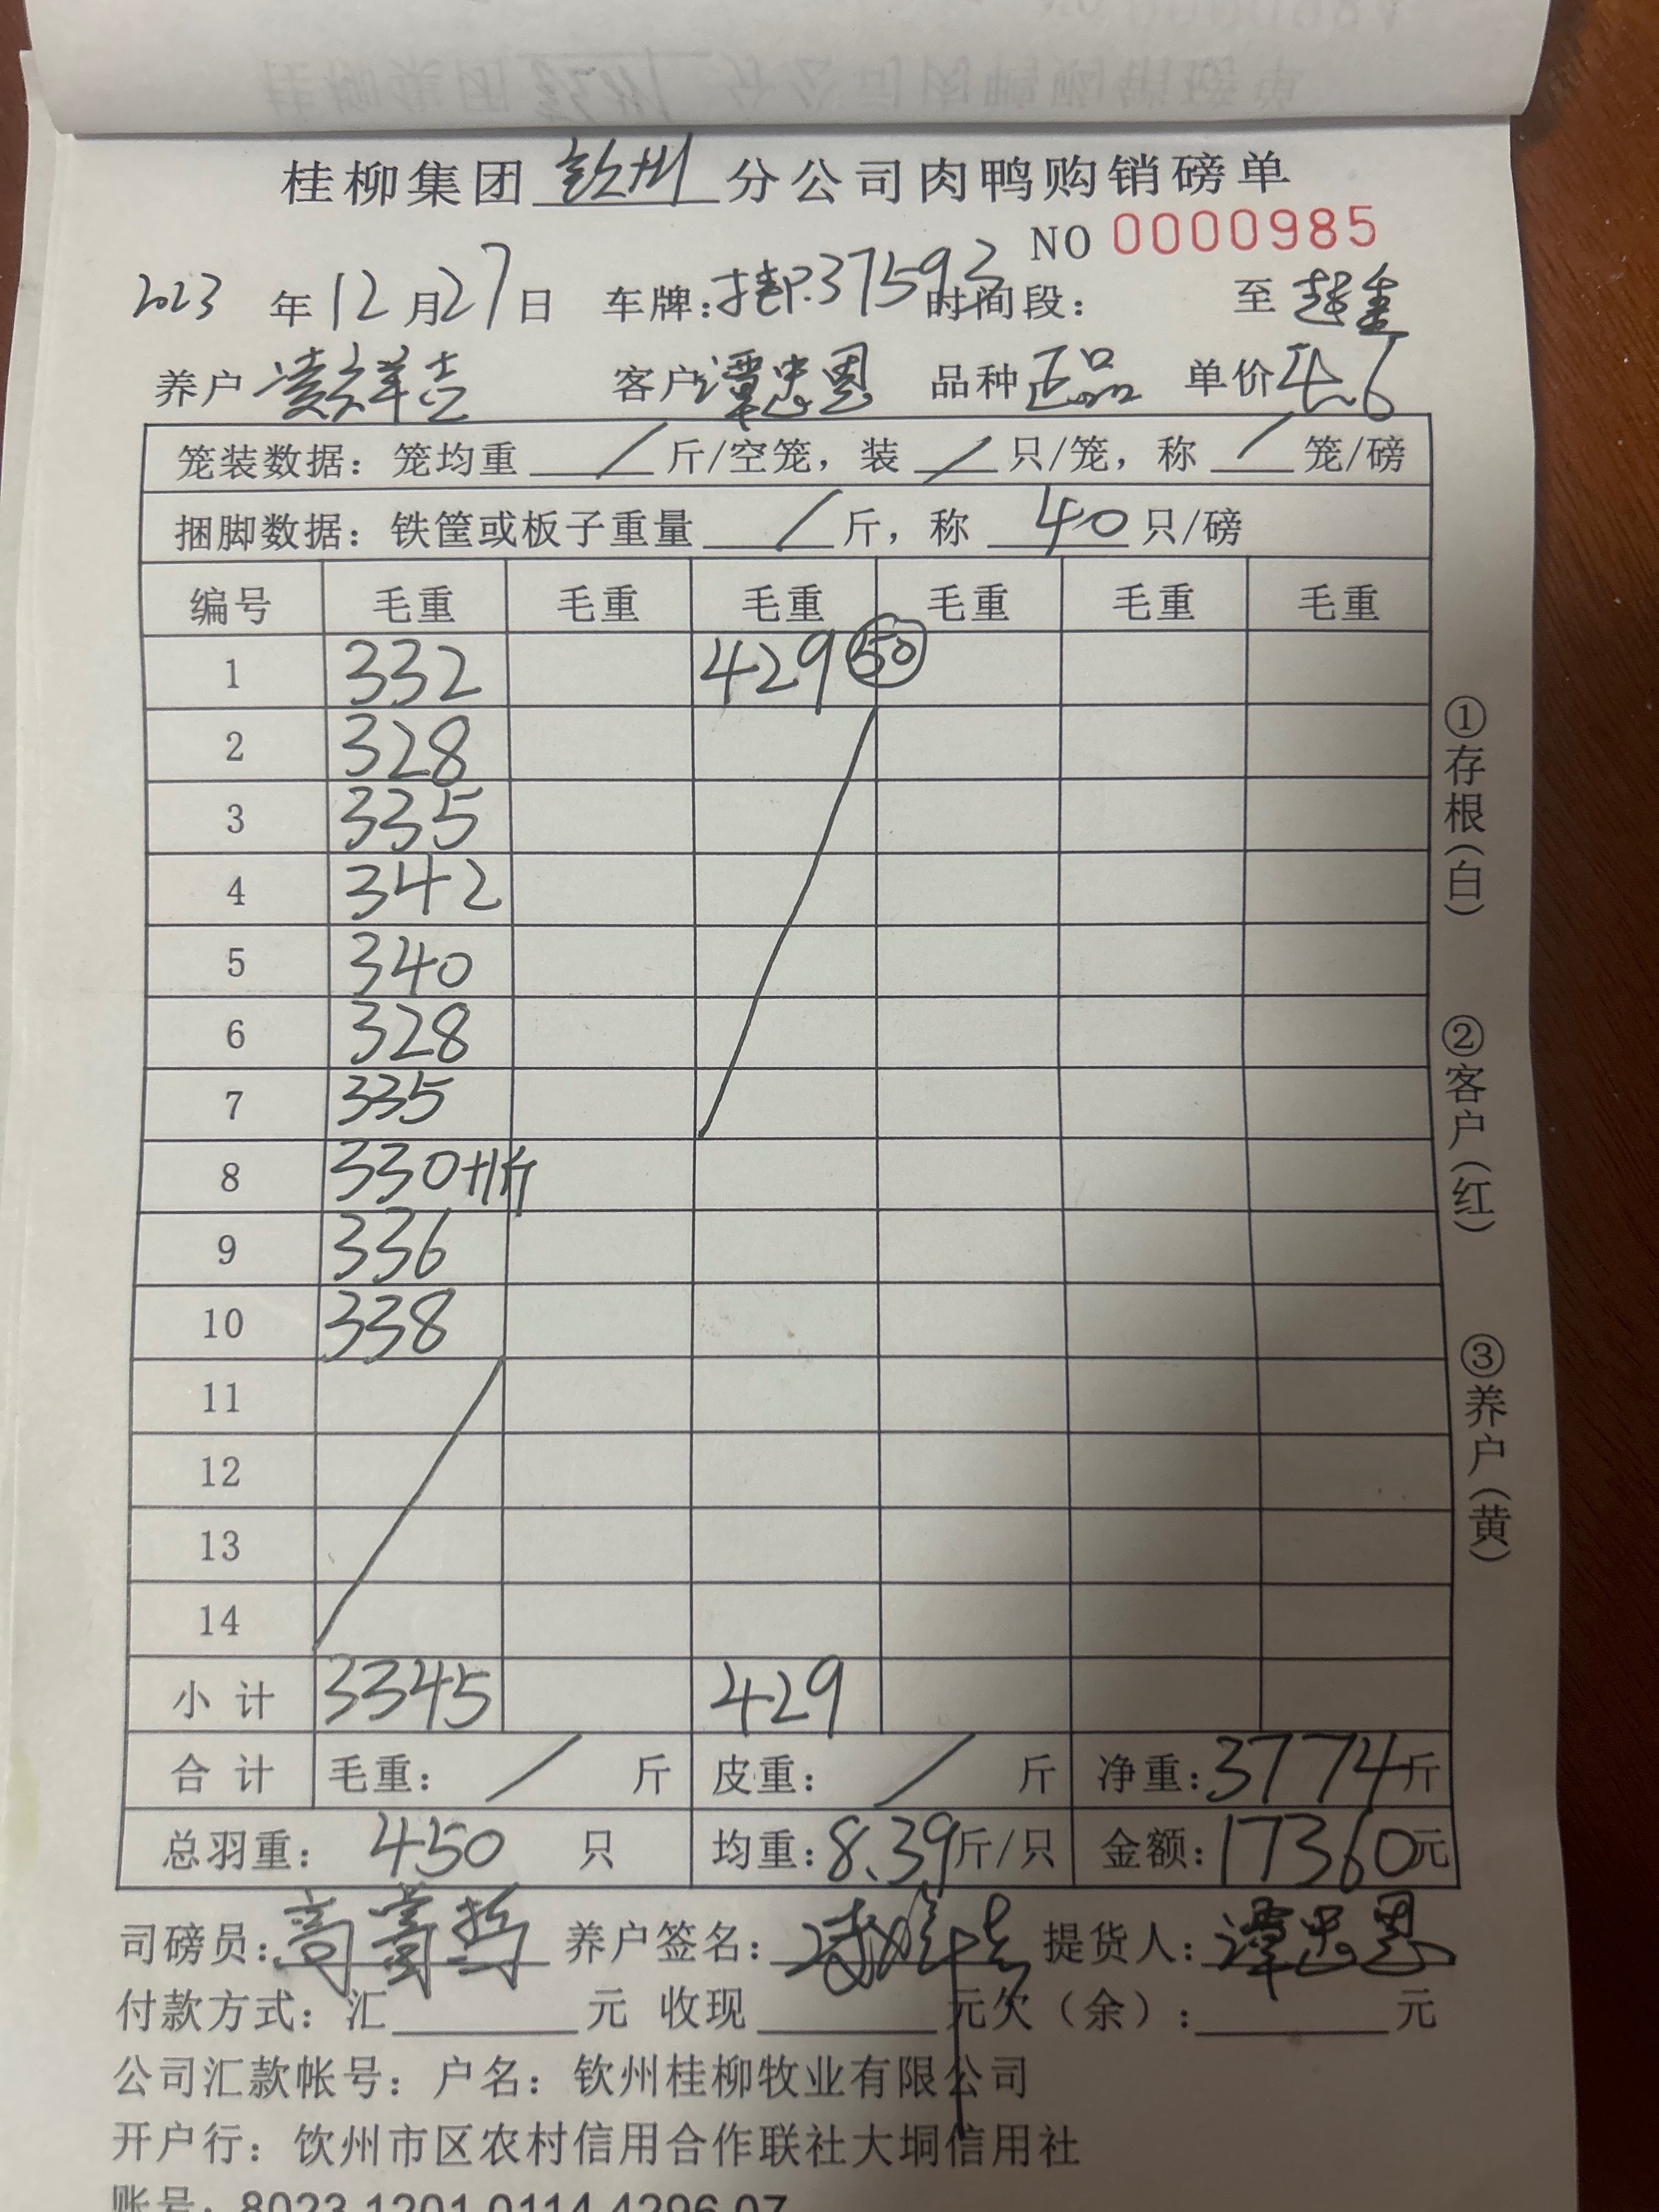 桂柳集团钦州分公司肉鸭购销磅单
NO 0000985
2023年12月27日 车牌:桂P.37593 时间段: 至
养户 凌祥吉 客户 谭忠恩 品种 正品 单价 4.6
笼装数据:笼均重 / 斤/空笼,装 / 只/笼,称 / 笼/磅
捆脚数据:铁筐或板子重量 / 斤,称 40 只/磅
编号 毛重 毛重 毛重 毛重 毛重 毛重
1 332 429 50
2 328
3 335
4 342
5 340
6 328
7 335
8 330+1斤
9 336
10 338
11
12
13
14
小计 3345 429
合计 毛重: / 斤 皮重: / 斤 净重:3774斤
总羽重: 450 只 均重:8.39斤/只 金额:17360元
司磅员: 养户签名: 提货人:谭忠恩
付款方式:汇 元 收现 元欠(余): 元
公司汇款帐号:户名:钦州桂柳牧业有限公司
开户行:钦州市区农村信用合作联社大垌信用社
账号:8023 1201 0114 4296 07
①存根(白) ②客户(红) ③养户(黄)